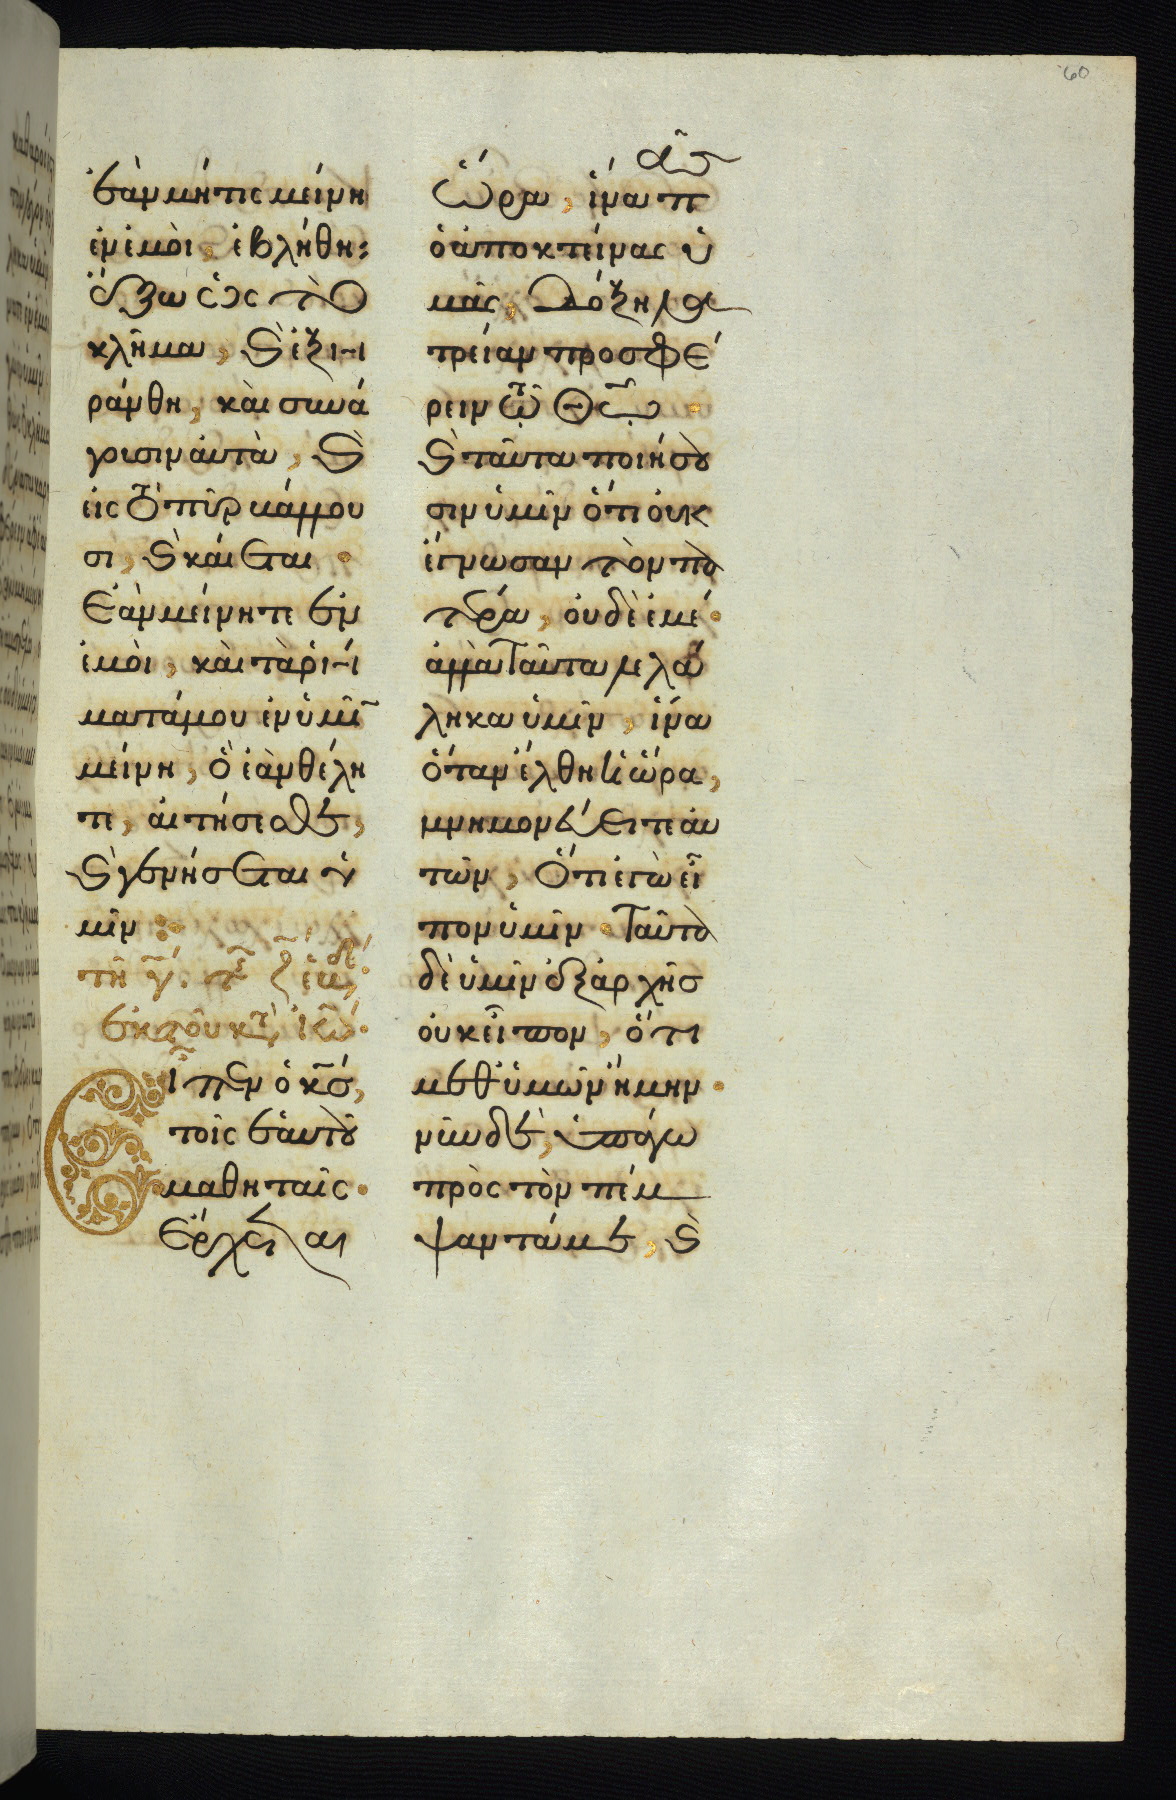 60
ἐὰν μή τις μείνῃ
ἐν ἐμοὶ, ἐβλήθη
ἔξω ὡς τὸ
κλῆμα, καὶ ἐξη
ράνθη, καὶ συνά
γουσιν αὐτὰ, καὶ
εἰς τὸ πῦρ βάλλου
σι, καὶ καίεται.
Ἐὰν μείνητε ἐν
ἐμοὶ, καὶ τὰ ῥή
ματά μου ἐν ὑμῖ̄
μείνῃ, ὃ ἐὰν θέλη
τε, αἰτήσεσθε,
καὶ γενήσεται ὑ
μῖν
τῆ γ̄. τῆς ζ̄ ἑβδ
ἐκ τοῦ κτ ἰω
Εἶπεν ὁ κς̄,
τοῖς ἑαυτοῦ
μαθηταῖς.
Ἔρχεται
ὥρα, ἵνα πᾶς
ὁ ἀποκτείνας ὑ
μᾶς, δόξῃ λα
τρείαν προσφέ
ρειν τῶ Θῶ
καὶ ταῦτα ποιήσου
σιν ὑμῖν ὅτι οὐκ
ἔγνωσαν τὸν πα
τέρα, οὐδὲ ἐμέ.
ἀλλὰ ταῦτα λελά
ληκα ὑμῖν, ἵνα
ὅταν ἔλθῃ ἡ ὥρα,
μνημονεύειτε αὐ
τῶν, ὅτι ἐγὼ εἶ
πον ὑμῖν. Ταῦτα
δὲ ὑμῖν ἐξ ἀρχῆς
οὐκ εἶπον, ὅτι
μεθ' ὑμῶν ἤμην.
νῦν δὲ, ὑπάγω
πρὸς τὸν πέμ
ψαντά με, καὶ